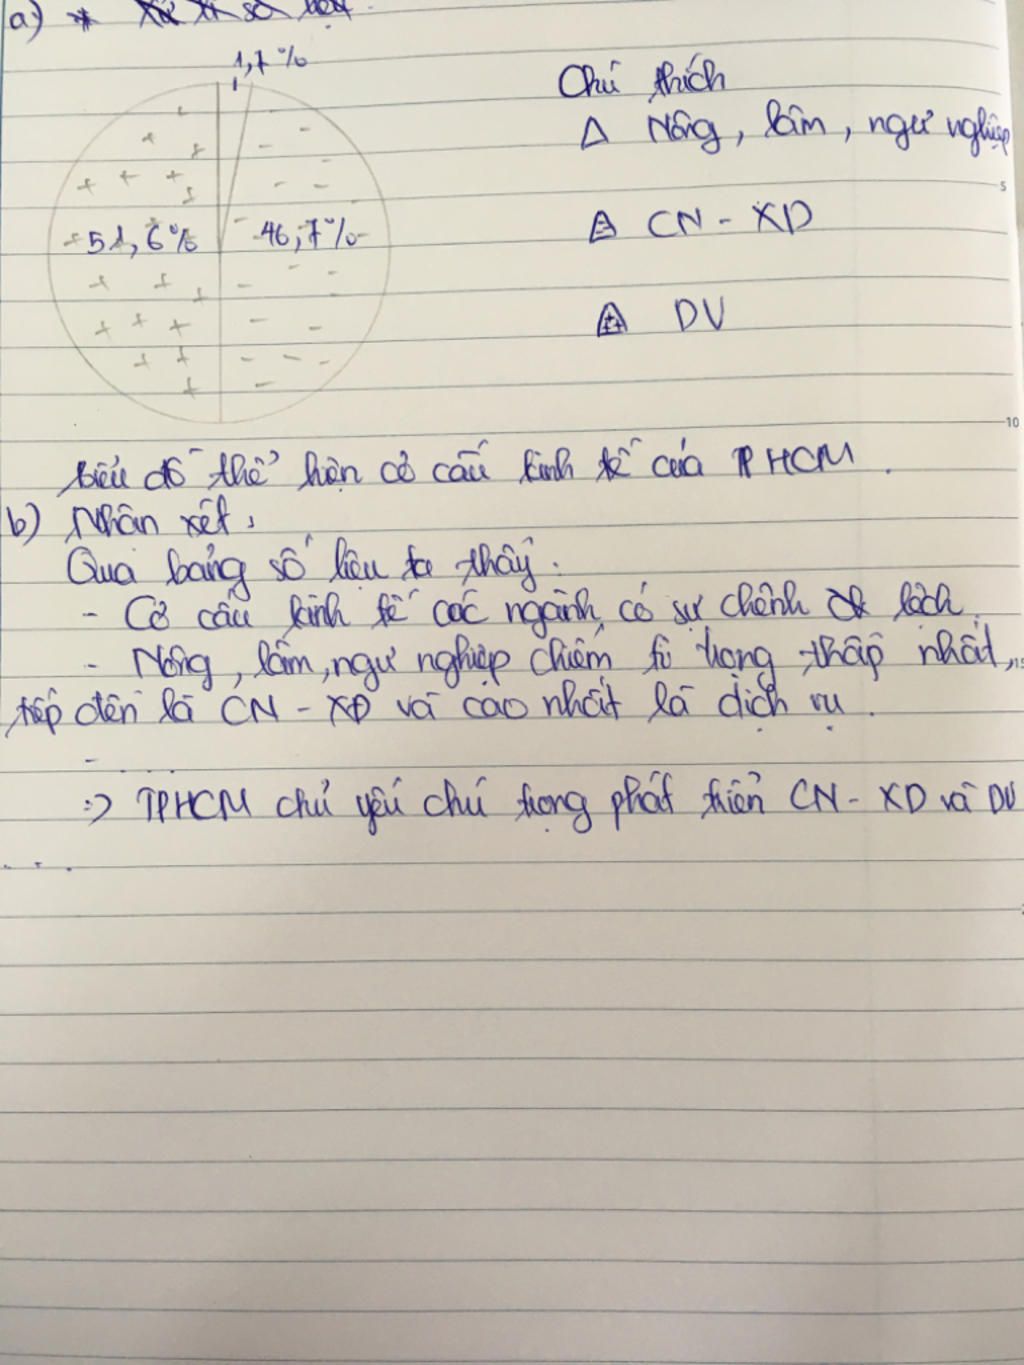 a) * Xử lí số liệu.
1,7%
51,6%
46,7%
Chú thích
Nông, lâm, ngư nghiệp
CN - XD
DV
biểu đồ thể hiện cơ cấu kinh tế của TPHCM.
b) Nhận xét:
Qua bảng số liệu ta thấy:
- Cơ cấu kinh tế các ngành có sự chênh lệch.
- Nông, lâm, ngư nghiệp chiếm tỉ trọng thấp nhất,
tiếp đến là CN - XD và cao nhất là dịch vụ.
- ...
=> TPHCM chủ yếu chú trọng phát triển CN - XD và DV
...
5
10
15